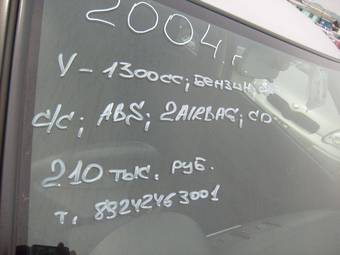 2004 г
V - 1300cc; БЕНЗИН;
с/с; ABS; 2AIRBAG; CD
210 тыс. руб.
т. 89242463001